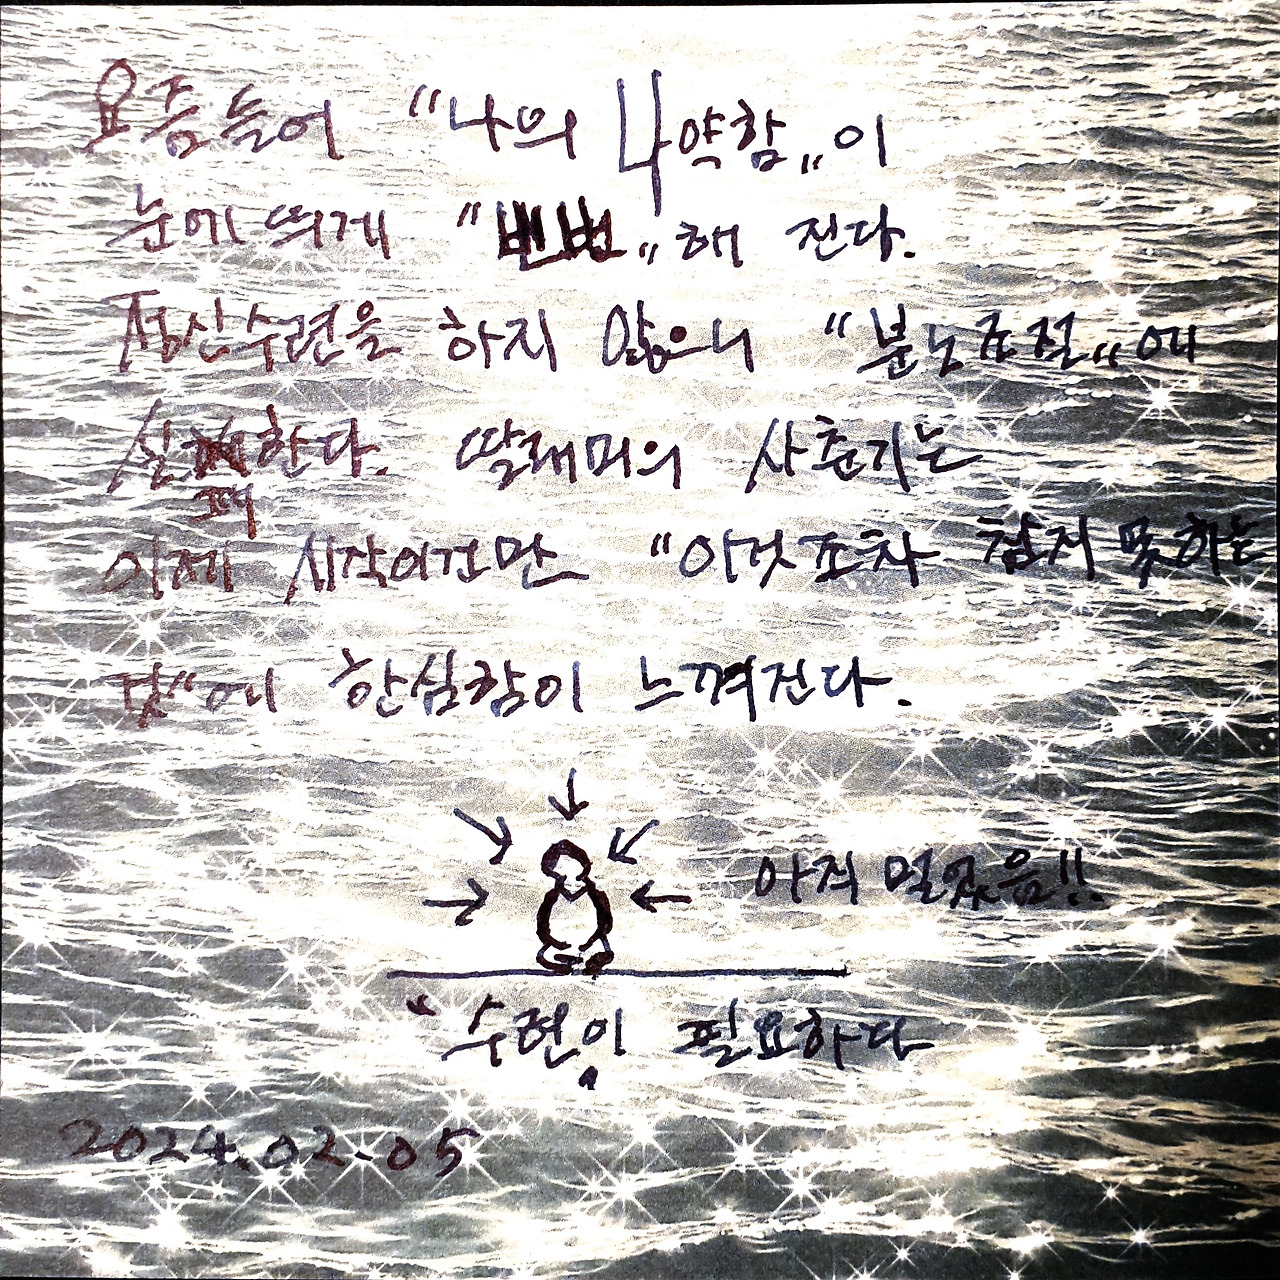 요즘들어 "나의 나약함„이
눈에 띄게 "빈번„해 진다.
정신수련을 하지 않으니 "분노조절„에
실한다. 딸래미의 사춘기는
패
이제 시작이건만 "이것조차 참지 못하는
것"에 한심함이 느껴진다.
아직 멀었음!!
"수련이 필요하다
2024.02.05